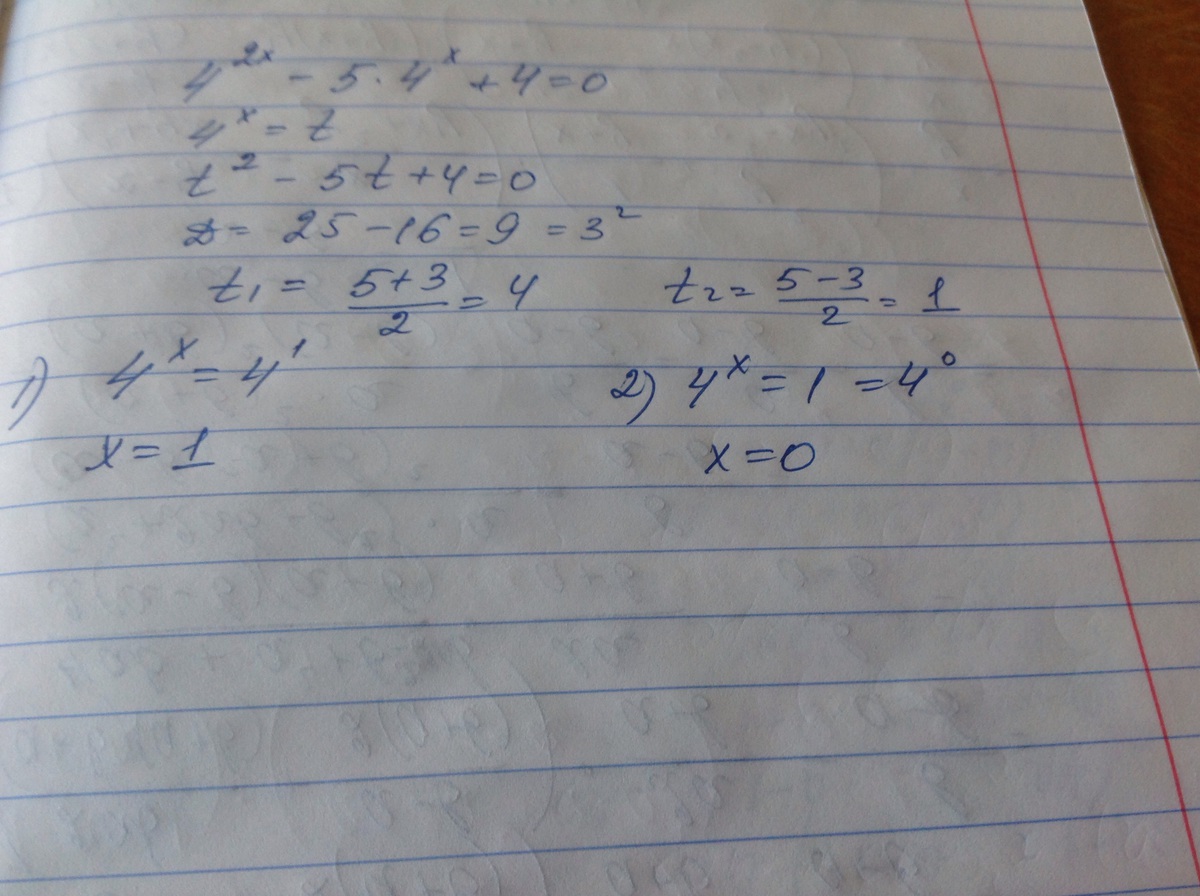 4^{2x} - 5 · 4^x + 4 = 0
4^x = t
t^2 - 5t + 4 = 0
D = 25 - 16 = 9 = 3^2
t_1 = \frac{5+3}{2} = 4    t_2 = \frac{5-3}{2} = 1
1) 4^x = 4^1    2) 4^x = 1 = 4^0
x = 1    x = 0